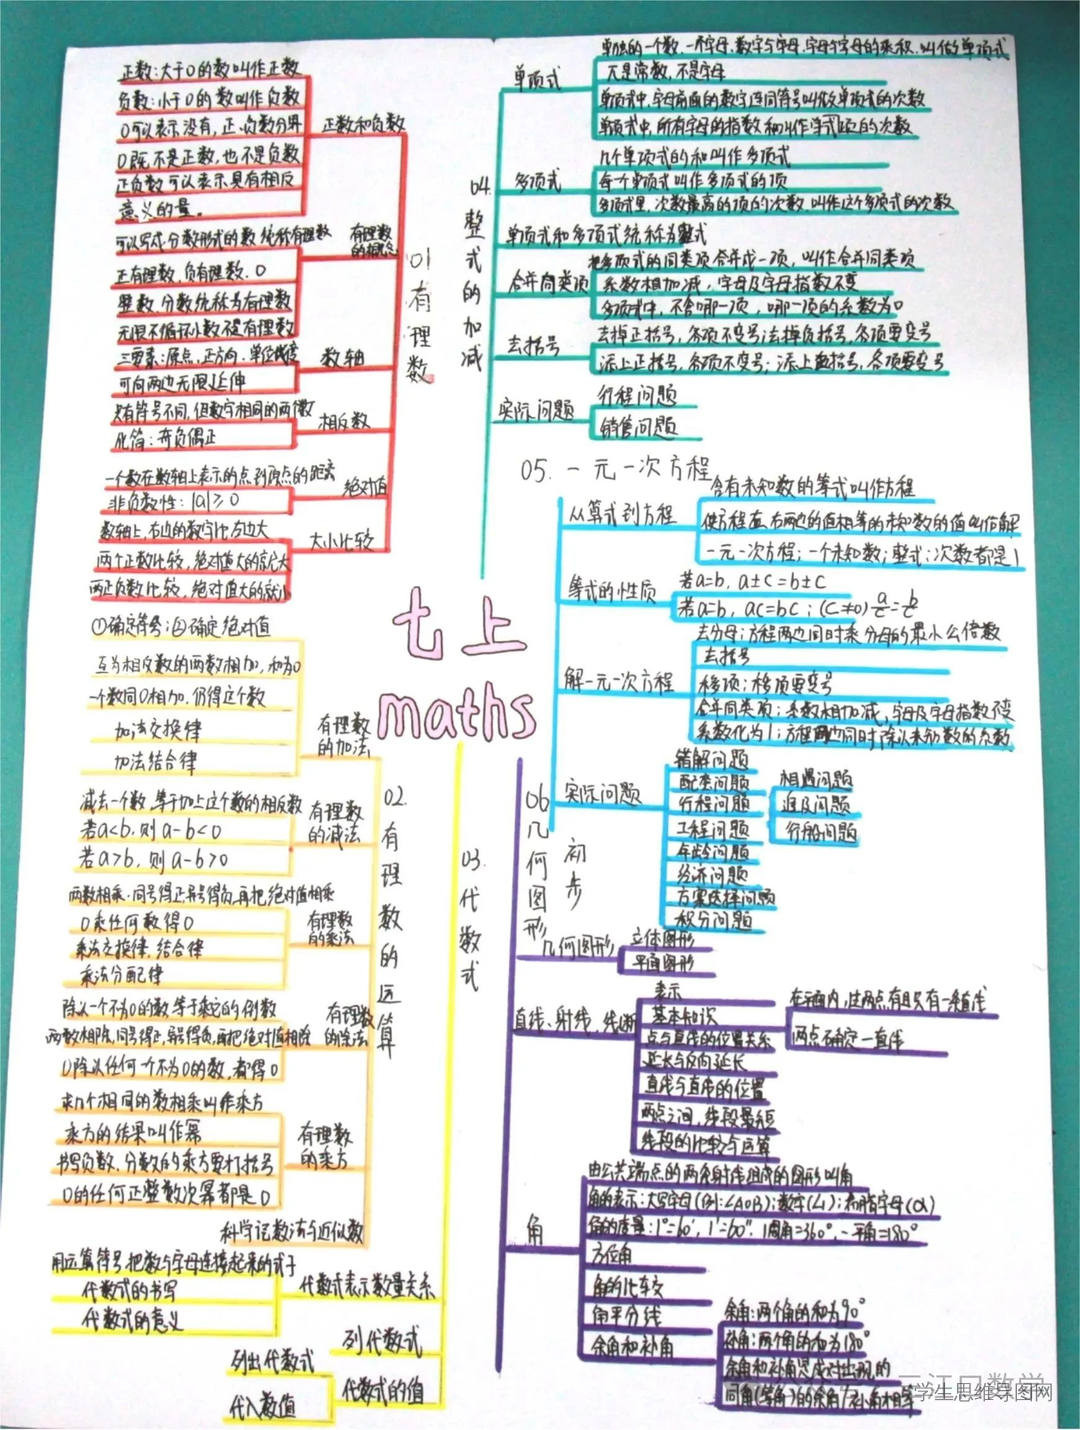 七上
maths
01
有理数
正数和负数
正数:大于0的数叫作正数
负数:小于0的数叫作负数
0可以表示没有,正、负数分界
0既不是正数,也不是负数
正负数可以表示具有相反
意义的量。
有理数
的概念
可以写成分数形式的数统称有理数
正有理数,负有理数、0
整数、分数统称为有理数
无限不循环小数不是有理数
数轴
三要素:原点,正方向,单位长度
可向两边无限延伸
相反数
只有符号不同,但数字相同的两个数
化简:奇负偶正
绝对值
一个数在数轴上表示的点到原点的距离
非负数性:|a|≥0
大小比较
数轴上,右边的数字比左边大
两个正数比较,绝对值大的就大
两正负数比较,绝对值大的就小
02.
有理数的运算
有理数
的加法
①确定符号;②确定绝对值
互为相反数的两数相加,和为0
一个数同0相加,仍得这个数
加法交换律
加法结合律
有理数
的减法
减去一个数,等于加上这个数的相反数
若a<b,则a-b<0
若a>b,则a-b>0
有理数
的乘法
两数相乘,同号得正,异号得负,再把绝对值相乘
0乘任何数得0
乘法交换律,结合律
乘法分配律
有理数
的除法
除以一个不为0的数等于乘它的倒数
两数相除,同号得正,异号得负,再把绝对值相除
0除以任何一个不为0的数,都得0
有理数
的乘方
求n个相同的数相乘叫作乘方
乘方的结果叫作幂
书写负数、分数的乘方要打括号
0的任何正整数次幂都是0
科学记数法与近似数
03.
代数式
代数式表示数量关系
用运算符号把数与字母连接起来的式子
代数式的书写
代数式的意义
列代数式
代数式的值
列出代数式
代入数值
04.
整式的加减
单项式
单独的一个数、一个字母、数字与字母、字母与字母的乘积,叫做单项式
π是常数,不是字母
单项式中,字母前面的数字连同符号叫做单项式的次数
单项式中,所有字母的指数和叫作单式项的次数
多项式
几个单项式的和叫作多项式
每个单项式叫作多项式的项
多项式里,次数最高的项的次数,叫作这个多项式的次数
单项式和多项式统称为整式
合并同类项
把多项式的同类项合并成一项,叫作合并同类项
系数相加减,字母及字母指数不变
多项式中,不含哪一项,哪一项的系数为0
去括号
去掉正括号,各项不变号;去掉负括号,各项要变号
添上正括号,各项不变号;添上负括号,各项要变号
实际问题
行程问题
销售问题
05.一元一次方程
从算式到方程
含有未知数的等式叫作方程
使方程左、右两边的值相等的未知数的值叫作解
一元一次方程;一个未知数;整式;次数都是1
等式的性质
若a=b,a±c=b±c
若a=b,ac=bc;(c≠0)a/c=b/c
解一元一次方程
去分母;方程两边同时乘分母的最小公倍数
去括号
移项;移项要变号
合并同类项;系数相加减,字母及字母指数不变
系数化为1;方程两边同时除以未知数的系数
实际问题
错解问题
配套问题
行程问题
相遇问题
追及问题
行船问题
工程问题
年龄问题
经济问题
方案选择问题
积分问题
06
几何图形
初步
几何图形
立体图形
平面图形
直线、射线、线段
表示
基本知识
在平面内,过两点有且只有一条直线
两点确定一直线
点与直线的位置关系
延长与反向延长
直线与直线的位置
两点之间,线段最短
线段的比较与运算
角
由公共端点的两条射线组成的图形叫角
角的表示:大写字母(例:∠AOB);数字(∠1);希腊字母(α)
角的度量:1°=60′,1′=60″,1周角=360°,一平角=180°
方位角
角的比较
角平分线
余角和补角
余角:两个角的和为90°
补角:两个角的和为180°
余角和补角是成对出现的
同角(等角)的余角/补角相等
三江口数学
学生思维导图网